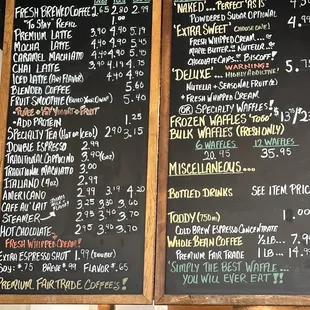 FRESH BREWED COFFEE 2.65 2.80 2.99
"TO STAY" REFILL 1.00
PREMIUM LATTE 3.90 4.40 5.19
MOCHA LATTE 4.90 5.40
CARAMEL MACHIATO 4.90 5.40
CHAI LATTE 3.90 4.40 5.15
ICED LATTE (ANY FLAVOR) 4.40 4.90
BLENDED COFFEE 5.60
FRUIT SMOOTHIE 5.40
+ ADD PROTEIN 1.25
SPECIALTY TEA (HOT OR ICED) 2.90 3.15
DOUBLE ESPRESSO 2.99
TRADITIONAL CAPPUCINO 3.90 (6oz)
TRADITIONAL MACHIATO 3.00
ITALIANO (4oz) 2.99
AMERICANO 2.99 3.19 4.20
CAFE AU LAIT 3.25 3.40 3.70
STEAMER 2.95 3.40 3.70
HOT CHOCOLATE 2.95 3.40 3.70
FRESH WHIPPED CREAM!
EXTRA ESPRESSO SHOT 1.99 (DOUBLE)
SOY: $.75 BREVE $.99 FLAVOR $.65
PREMIUM FAIR TRADE COFFEE'S!
"NAKED"... PERFECT "AS IS"
POWDERED SUGAR OPTIONAL
"EXTRA SWEET" CHOOSE ONE!
FRESH WHIPPED CREAM...
MAPLE BUTTER... NUTELLA...
CHOCOLATE CHIPS... BISCOFF!
WARNING:
"DELUXE"... HIGHLY ADDICTIVE!
NUTELLA + SEASONAL FRUIT(S)
+ FRESH WHIPPED CREAM
OR SPECIALTY WAFFLES!
FROZEN WAFFLES "TOGO"
BULK WAFFLES (FRESH ONLY)
6 WAFFLES 12 WAFFLES
20.45 35.95
MISCELLANEOUS...
BOTTLED DRINKS SEE ITEM PRIC
TODDY (750ml)
COLD BREW ESPRESSO CONCENTRATE
WHOLE BEAN COFFEE 1/2 LB - 7.9
PREMIUM FAIR TRADE 1 LB - 14.9
"SIMPLY THE BEST WAFFLE...
YOU WILL EVER EAT"!!